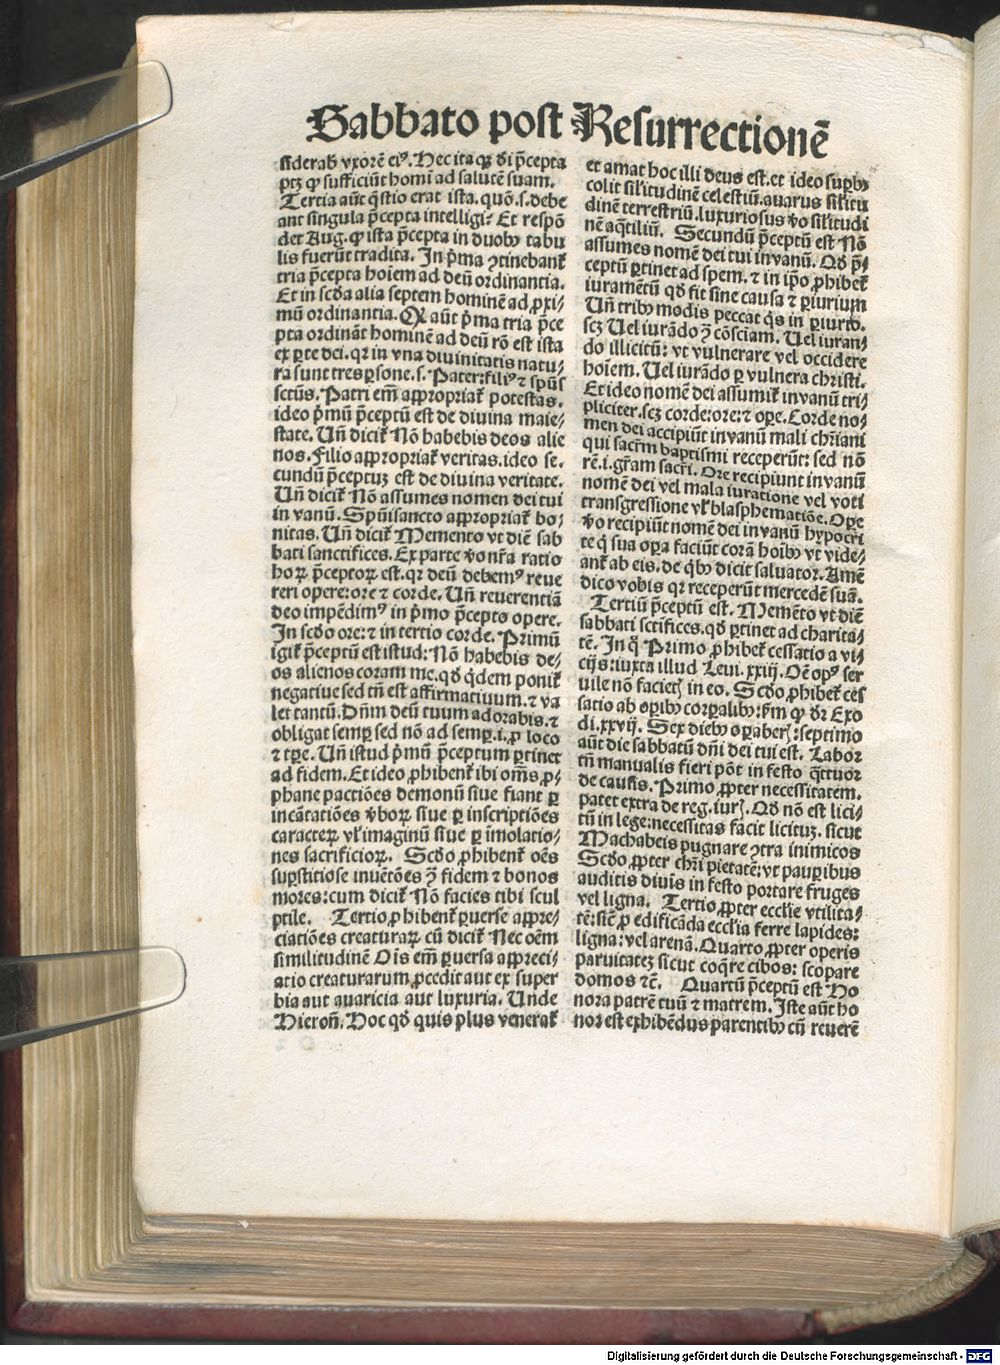 Sabbato post Resurrectionē
siderab vxorē eiꝰ. Hec ita qꝫ dī p̄cepta
ptꝫ ꝙ sufficiūt homī ad salutē suam.
Tertia aūt q̄stio erat ista. quō .s. debe
ant singula p̄cepta intelligi? Et respō
det Aug. ꝙ ista p̄cepta in duobꝰ tabu
lis fuerūt tradita. In p̄ma ꝯtinebant̄
tria p̄cepta hoīem ad deū ordinantia.
Et in scd̄a alia septem hominē ad ꝓxi⸗
mū ordinantia. Qr̄ aūt p̄ma tria p̄ce
pta ordināt hominē ad deū rō est ista
ex ꝑte dei. qr in vna diuinitatis natu⸗
ra sunt tres ꝑsone. s. Pater: filiꝰ ⁊ spūs
sctūs. Patri em̄ appropriat̄ potestas.
ideo p̄mū p̄ceptū est de diuina maie⸗
state. Un̄ dicit̄ Nō habebis deos alie
nos. Filio appropriat̄ veritas. ideo se⸗
cundū p̄ceptuꝫ est de diuina veritate.
Un̄ dicit̄ Nō assumes nomen dei tui
in vanū. Spūisancto appropriat̄ bo⸗
nitas. Un̄ dicit̄ Memento vt diē sab
bati sanctifices. Ex parte ꝟo nr̄a ratio
hoꝝ p̄ceptoꝝ est. qr deū debemꝰ reue
reri opere: ore ⁊ corde. Un̄ reuerentiā
deo impēdimꝰ in p̄mo p̄cepto opere.
In scd̄o ore: ⁊ in tertio corde. Primū
igit̄ p̄ceptū est istud: Nō habebis de⸗
os alienos coram me. qd̄ q̄dem ponit̄
negatiue sed tn̄ est affirmatiuum. ⁊ va
let tantū. Dn̄m deū tuum adorabis. ⁊
obligat semꝑ sed nō ad semꝑ .i. ꝓ loco
⁊ tꝑe. Un̄ istud p̄mū p̄ceptum ꝑtinet
ad fidem. Et ideo ꝓhibent̄ ibi om̄s, ꝓ⸗
phane pactiōes demonū siue fiant ꝑ
incātatiōes ꝟboꝝ siue ꝑ inscriptiōes
caracteꝝ vl̓ imaginū siue ꝑ imolatio⸗
nes sacrificioꝝ. Scd̄o ꝓhibent̄ oēs
suꝑstitiose inuētōes ꝯ̄ fidem ⁊ bonos
mores: cum dicit̄ Nō facies tibi scul
ptile. Tertio ꝓhibent̄ ꝑuerse appre⸗
ciatiōes creaturaꝝ cū dicit̄ Nec oēm
similitudinē Ois em̄ ꝑuersa appreci⸗
atio creaturarum ꝓcedit aut ex super
bia aut auaricia aut luxuria. Unde
Hieron̄. Hoc qd̄ quis plus venerat̄
et amat hoc illi deus est. et ideo suꝑbꝰ
colit sil̓itudinē celestiū. auarus sil̓itu
dinē terrestriū. luxuriosus ꝟo sil̓itudi
nē aq̄tiliū. Secundū p̄ceptū est Nō
assumes nomē dei tui in vanū. Qd̄ p̄⸗
ceptū ꝑtinet ad spem. ⁊ in ip̄o ꝓhibet̄
iuramētū qd̄ fit sine causa ⁊ ꝑiurium
Un̄ tribꝰ modis peccat q̄s in ꝑiurio.
scꝫ Uel iurādo ꝯ̄ cōsciam. Uel iuran⸗
do illicitū: vt vulnerare vel occidere
hoīem. Uel iurādo ꝑ vulnera christi.
Et ideo nomē dei assumit̄ in vanū tri⸗
pliciter. scꝫ corde: ore: ⁊ oꝑe. Corde no⸗
men dei accipiūt in vanū mali chr̄iani
qui sacr̄m baptismi receperūt: sed nō
rē. i. gr̄am sacr̄i. Ore recipiunt in vanū
nomē dei vel mala iuratione vel voti
transgressione vl̓ blasphematiōe. Oꝑe
ꝟo recipiūt nomē dei in vanū hypocri
te q̄ sua oꝑa faciūt corā hoībꝰ vt vide⸗
ant̄ ab eis. de q̄bꝰ dicit saluator. Amē
dico vobis qr receperūt mercedē suā.
Tertiū p̄ceptū est. Memēto vt diē
sabbati sctifices. qd̄ ꝑtinet ad charita⸗
tē. In q̄ Primo ꝓhibet̄ cessatio a vi⸗
cijs: iuxta illud Leui. xxiij. Oē opꝰ ser
uile nō facietꝭ in eo. Scd̄o ꝓhibet̄ ces
satio ab oꝑibꝰ corꝑalibꝰ: ẜm ꝙ dr̄ Exo
di. xxvij. Sex diebꝰ oꝑaberꝭ: septimo
aūt die sabbatū dn̄i dei tui est. Labor
tn̄ manualis fieri pōt in festo q̄ttuor
de causis. Primo ꝓpter necessitatem.
patet extra de reg. iurꝭ. Qd̄ nō est lici⸗
tū in lege: necessitas facit licituꝫ. sicut
Machabeis pugnare ꝯtra inimicos
Scd̄o ꝓpter chr̄i pietatē: vt pauꝑibus
auditis diuis in festo portare fruges
vel ligna. Tertio ꝓpter eccl̓ie vtilita⸗
tē: sic̄ ꝓ edificāda eccl̓ia ferre lapides:
ligna: vel arenā. Quarto ꝓpter operis
paruitateꝫ sicut coq̄re cibos: scopare
domos ⁊c̄. Quartū p̄ceptū est Ho
nora patrē tuū ⁊ matrem. Iste aūt ho
nor est exhibēdus parentibꝰ cū reuerē
Digitalisierung gefördert durch die Deutsche Forschungsgemeinschaft - DFG